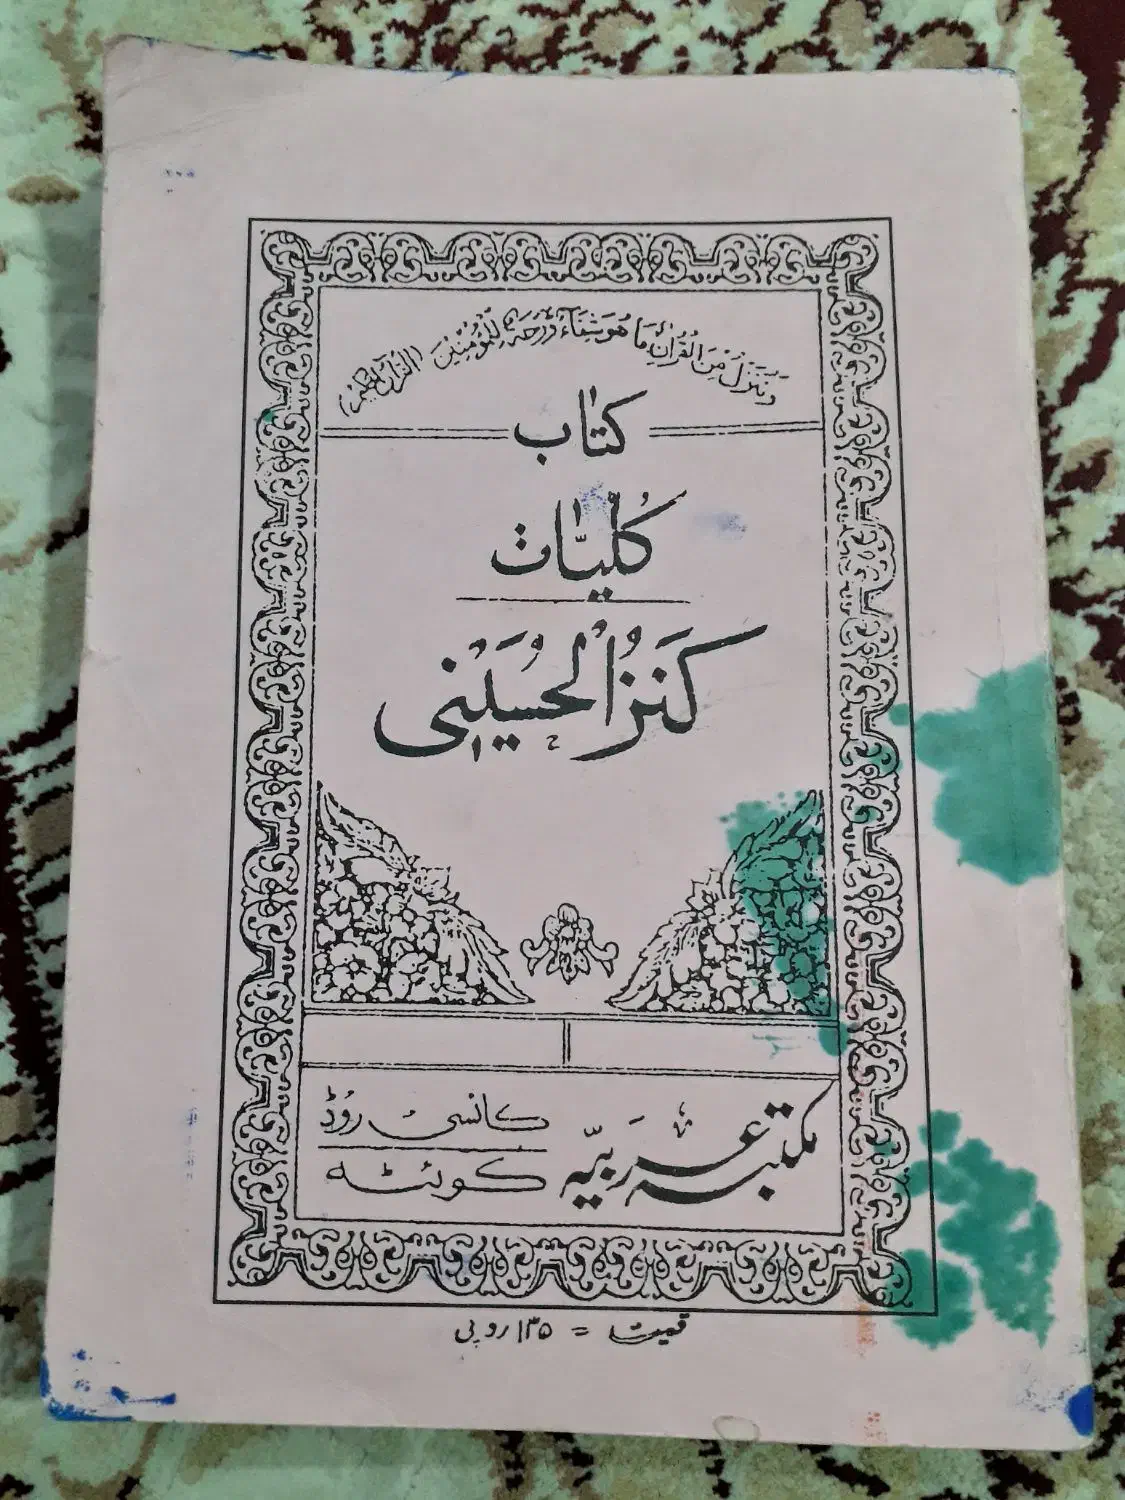 وَنُنَزِّلُ مِنَ الْقُرْآنِ مَا هُوَ شِفَاءٌ وَّرَحْمَةٌ لِّلْمُؤْمِنِينَ (القرآن العظیم)
کتاب
کُلیّات
کَنزُ الحُسَینی
مکتبہ عربیّہ
کانسی روڈ
کوئٹہ
قیمت = ۱۳۵ روپی